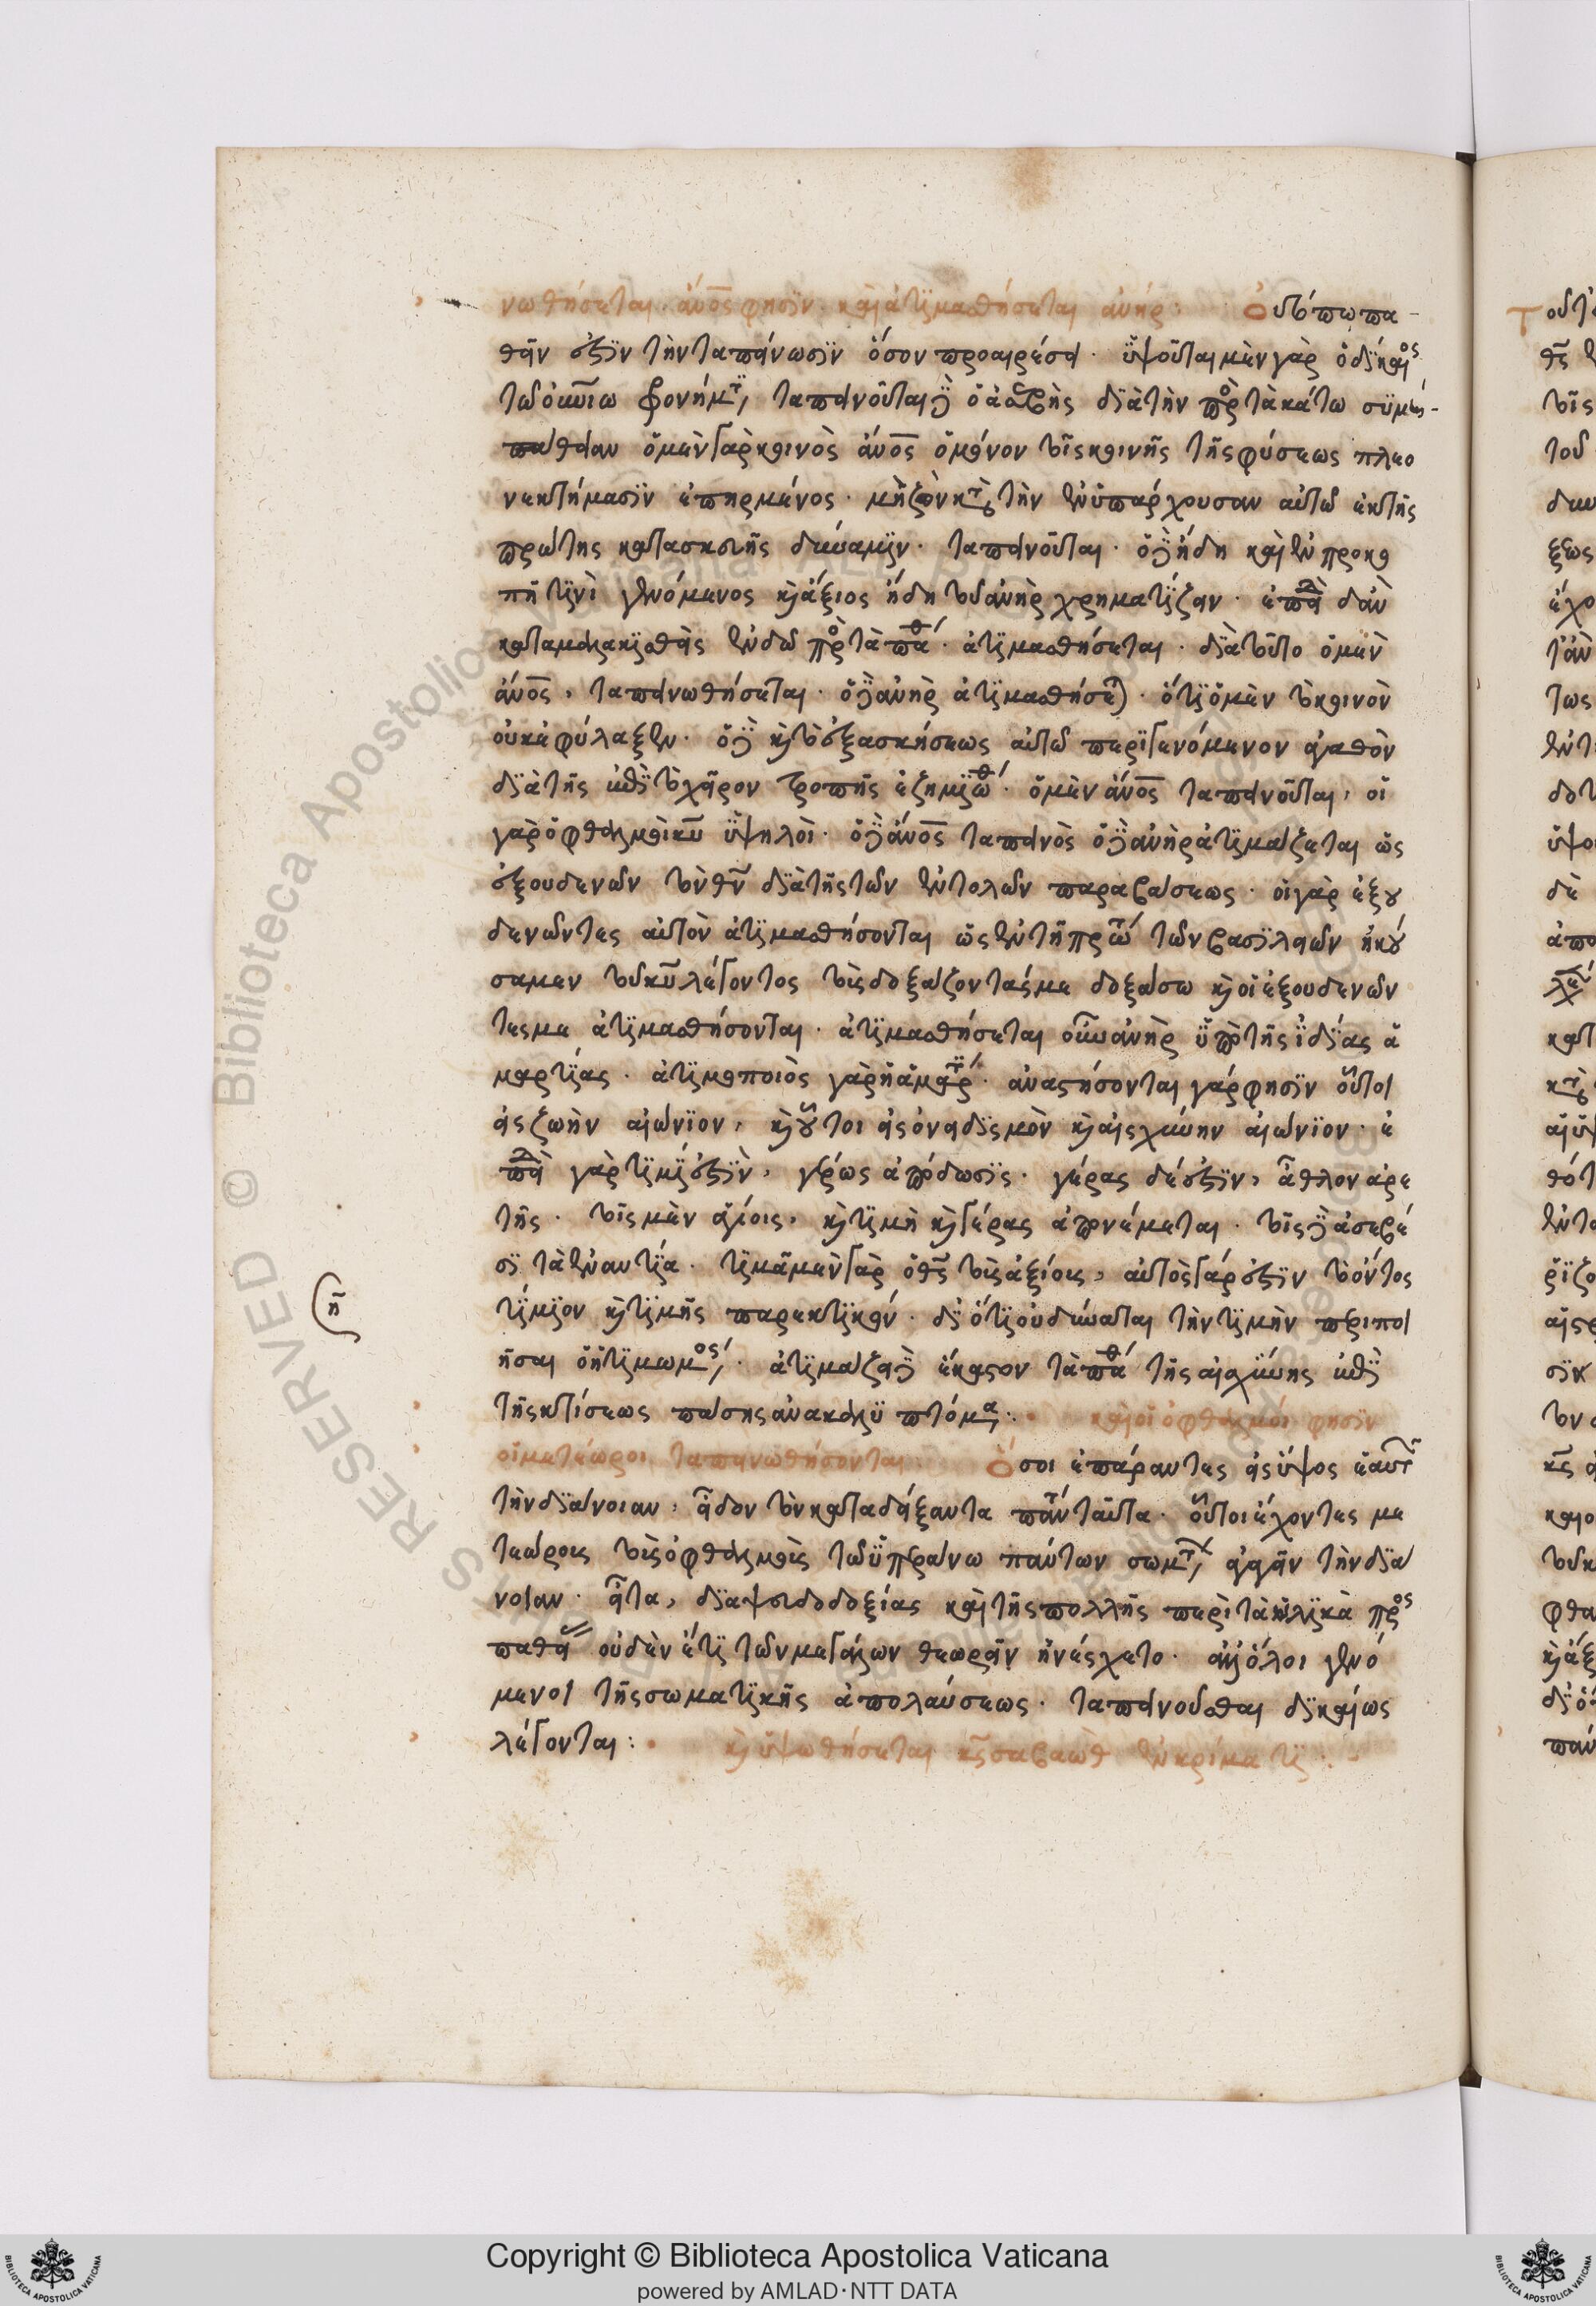 νωθήσεται· ἄνος φησὶν· καὶ ἀτιμασθήσεται ἀνήρ· Οὐ τόπω πα-
θεῖν ἐστὶν τὴν ταπείνωσιν ὅσον προαιρέσει· ὑψοῦται μὲν γὰρ ὁ δίκαιος
τῶ οἰκείω φρονήματι, ταπεινοῦται δὲ ὁ ἀσεβὴς διὰ τὴν πρὸς τὰ κάτω συμ-
πάθειαν ὁ μὲν γὰρ κοινὸς ἄνος ὁ μόνον τοῖς κοινοῖς τῆς φύσεως πλεο
νεκτήμασιν ἐπηρμένος· μὴ ζῶν κατὰ τὴν ἐνυπάρχουσαν αὐτῶ ἐκ τῆς
πρώτης κατασκευῆς δύναμιν· ταπεινοῦται· ὁ δὲ ἤδη καὶ ἐν προκο
πῆ τινὶ γενόμενος καὶ ἄξιος ἤδη τοῦ ἀνὴρ χρηματίζειν· ἐπειδὰν
καταμαλακισθεὶς ἐνδῶ πρὸς τὰ πάθη· ἀτιμασθήσεται· διὰ τοῦτο ὁ μὲν
ἄνος, ταπεινωθήσεται· ὁ δὲ ἀνὴρ ἀτιμασθήσεται· ὅτι ὁ μὲν τὸ κοινὸν
οὐκ ἐφύλαξεν· ὁ δὲ καὶ τὸ ἐξ ἀσκήσεως αὐτῶ περιγενόμενον ἀγαθὸν
διὰ τῆς ἐπὶ τὸ χεῖρον τροπῆς ἐζημιώθη· ὁ μὲν ἄνος ταπεινοῦται, οἱ
γὰρ ὀφθαλμοὶ κυ ὑψηλοὶ· ὁ δὲ ἄνος ταπεινὸς ὁ δὲ ἀνὴρ ἀτιμάζεται ὡς
ἐξουδενῶν τὸν θν διὰ τῆς τῶν ἐντολῶν παραβάσεως· οἱ γὰρ ἐξου
δενῶντες αὐτὸν ἀτιμασθήσονται ὡς ἐν τῆ πρώτη τῶν βασιλειῶν ἠκού
σαμεν τοῦ κυ λέγοντος τοὺς δοξάζοντάς με δοξάσω καὶ οἱ ἐξουδενῶν
τες με ἀτιμασθήσονται· ἀτιμασθήσεται οὖν ἀνὴρ ὑπὸ τῆς ἰδίας ἁ
μαρτίας· ἀτιμοποιὸς γὰρ ἡ ἁμαρτία· ἀναστήσονται γάρ φησιν οὗτοι
εἰς ζωὴν αἰώνιον, καὶ οὗτοι εἰς ὀνειδισμὸν καὶ αἰσχύνην αἰώνιον· ἐ
πειδὴ γὰρ τιμή ἐστιν, γέρως ἀπόδωσις· γέρας δέ ἐστιν, ἆθλον ἀρε
τῆς· τοῖς μὲν ἁγίοις, καὶ τιμὴ καὶ γέρας ἀπονέμεται· τοῖς δὲ ἀσεβέ
σι τὰ ἐναντία· τιμᾶ μὲν γὰρ ὁ θς τοὺς ἀξίους, αὐτὸς γάρ ἐστιν τὸ ὄντος
τίμιον καὶ τιμῆς παρεκτικόν· διότι οὐ δύναται τὴν τιμὴν περιποι
ῆσαι ὁ ἠτιμωμένος· ἀτιμάζει δὲ ἕκαστον τὰ πάθη τῆς αἰσχύνης ἐπὶ
τῆς κτίσεως πάσης ἀνακαλυπτόμενα: καὶ οἱ ὀφθαλμοὶ φησὶν
οἱ μετέωροι ταπεινωθήσονται Ὅσοι ἐπάραντες εἰς ὕψος ἑαυτῶν
τὴν διάνοιαν, εἶδον τὸν καταδείξαντα πάντα ταῦτα· οὗτοι ἔχοντες με
τεώρους τοὺς ὀφθαλμοὺς τῶ ὑπεράνω πάντων σωμάτων ἀγαγεῖν τὴν διά
νοιαν· εἶτα, διὰ ψευδοδοξίας καὶ τῆς πολλῆς περὶ τὰ ὑλικὰ προσ
παθείας οὐδὲν ἔτι τῶν μεγάλων θεωρεῖν ἠνέσχετο· ὅλοι γενό
μενοι τῆς σωματικῆς ἀπολαύσεως· ταπεινοῦσθαι δικαίως
λέγονται: καὶ ὑψωθήσεται κς σαβαὼθ ἐν κρίματι:
Copyright © Biblioteca Apostolica Vaticana
powered by AMLAD·NTT DATA